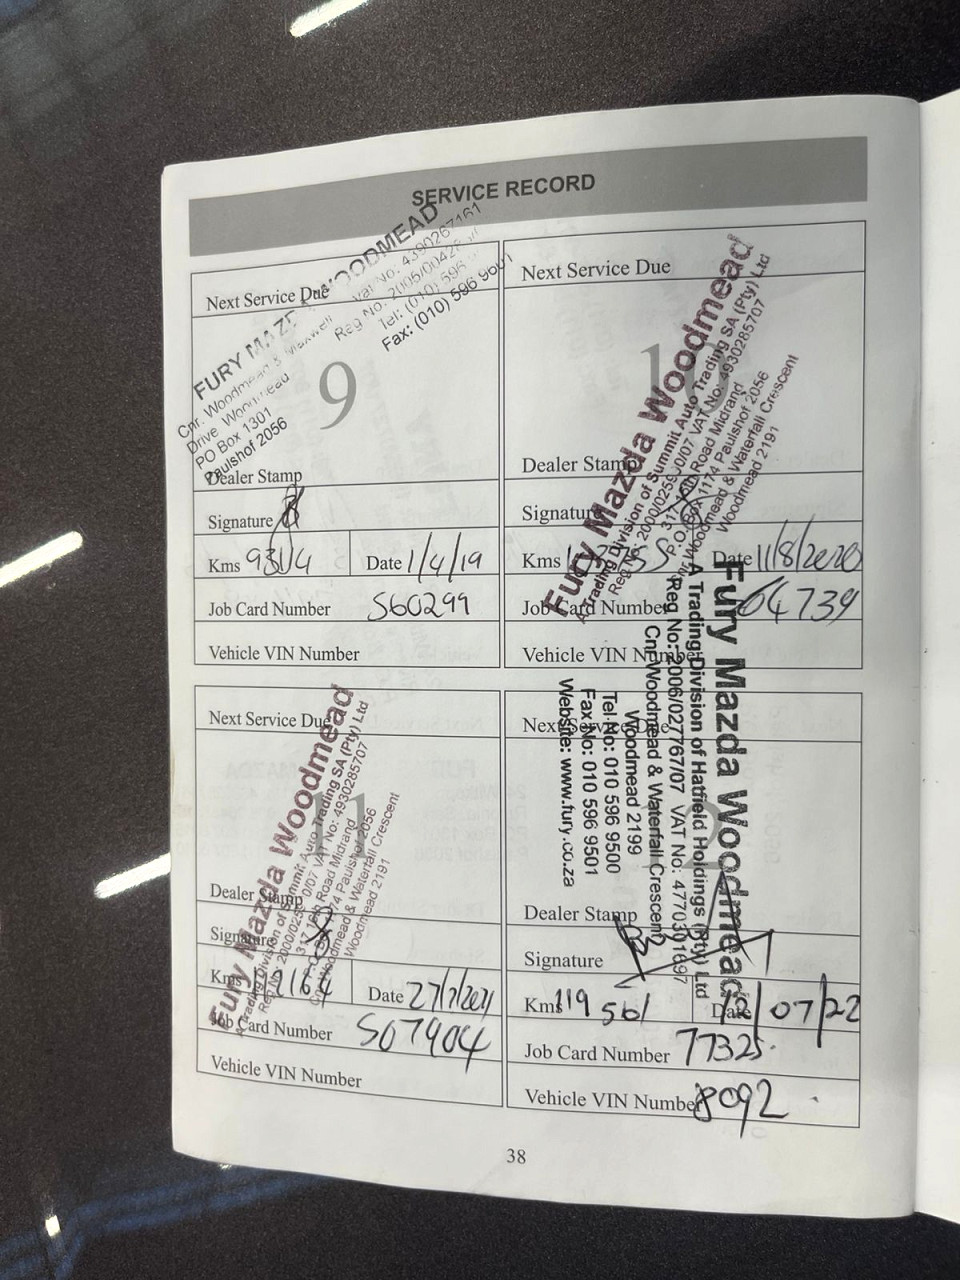 SERVICE RECORD
Next Service Due
FURY MAZDA WOODMEAD
Cnr. Woodmead & Maxwell
Drive Woodmead
PO Box 1301
Paulshof 2056
Vat No: 4390267161
Reg No: 2005/00428
Tel: (010) 596
Fax: (010) 596 9601
9
Dealer Stamp
Signature
Kms 93114 Date 1/4/19
Job Card Number S60299
Vehicle VIN Number
Next Service Due
10
Fury Mazda Woodmead
A Trading Division of Summit Auto Trading SA (Pty) Ltd
Reg No: 2000/025 0/07 VAT No: 4930285707
Road Midrand
P.O. Box 1174 Paulshof 2056
Cnr Woodmead & Waterfall Crescent
Woodmead 2191
Dealer Stamp
Signature
Kms Date 11/8/2020
Job Card Number 64739
Vehicle VIN Number
Next Service Due
11
Fury Mazda Woodmead
A Trading Division of Summit Auto Trading SA (Pty) Ltd
Reg No: 2000/025 0/07 VAT No: 4930285707
Road Midrand
P.O. Box 1174 Paulshof 2056
Cnr Woodmead & Waterfall Crescent
Woodmead 2191
Dealer Stamp
Signature
Kms 112164 Date 27/7/2021
Job Card Number S07904
Vehicle VIN Number
Next Service Due
12
Fury Mazda Woodmead
A Trading Division of Hatfield Holdings (Pty) Ltd
Reg No: 2006/027767/07 VAT No: 4770301697
Cnr Woodmead & Waterfall Crescent
Woodmead 2199
Tel No: 010 596 9500
Fax No: 010 596 9501
Website: www.fury.co.za
Dealer Stamp
Signature
Kms 119 561 Date 12/07/22
Job Card Number 77325.
Vehicle VIN Number 8092
38